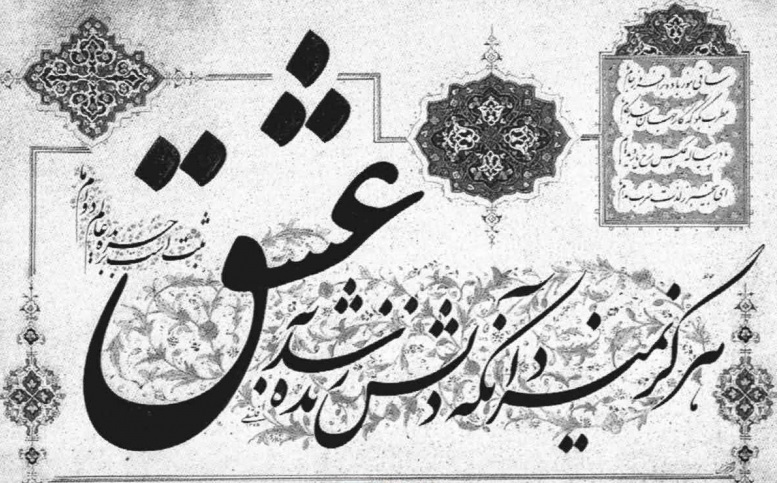 ساقی بنور باده برافروز جام ما
مطرب بگو که کار جهان شد بکام ما
ما در پیاله عکس رخ یار دیده‌ایم
ای بیخبر ز لذت شرب مدام ما
هرگز نمیرد آنکه دلش زنده شد به عشق
ثبت است بر جریده عالم دوام ما